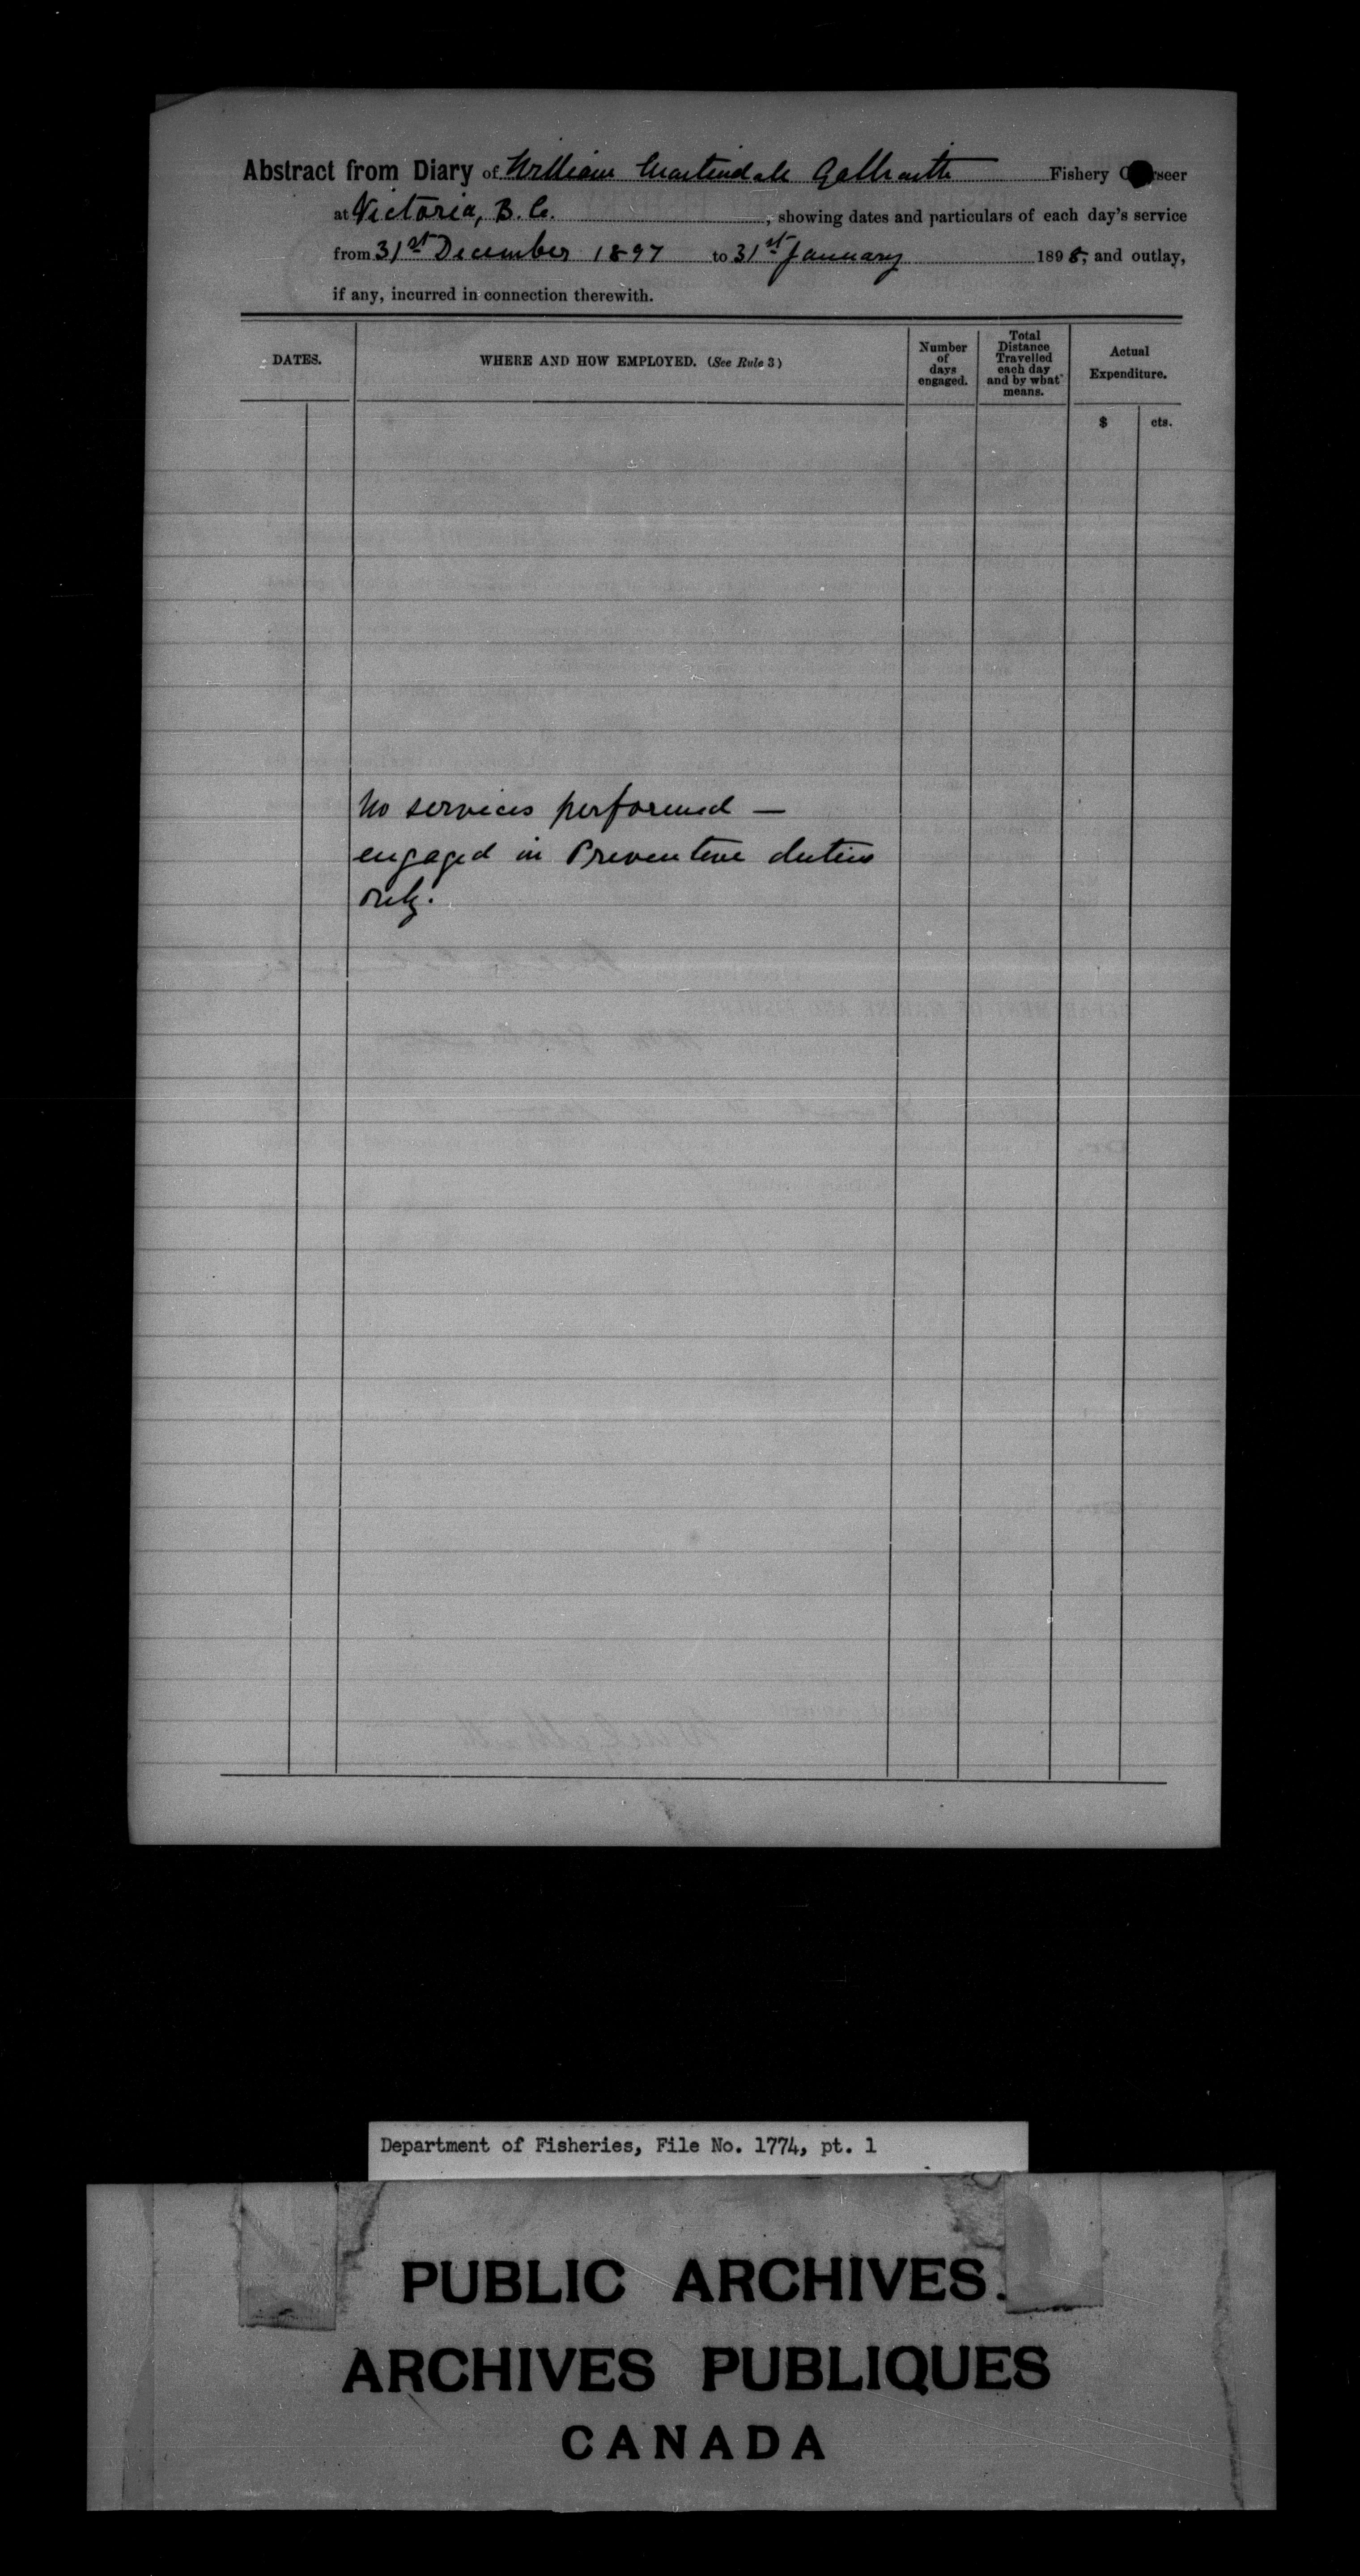 Abstract from Diary of William Martindale Galbraith Fishery Overseer
at Victoria, B.C. , showing dates and particulars of each day's service
from 31st December 1897 to 31st January 1898, and outlay,
if any, incurred in connection therewith.
DATES.
WHERE AND HOW EMPLOYED. (See Rule 3)
Number of days engaged.
Total Distance Travelled each day and by what means.
Actual Expenditure.
$ cts.
No services performed —
engaged in Preventive duties
only.
Department of Fisheries, File No. 1774, pt. 1
PUBLIC ARCHIVES.
ARCHIVES PUBLIQUES
CANADA